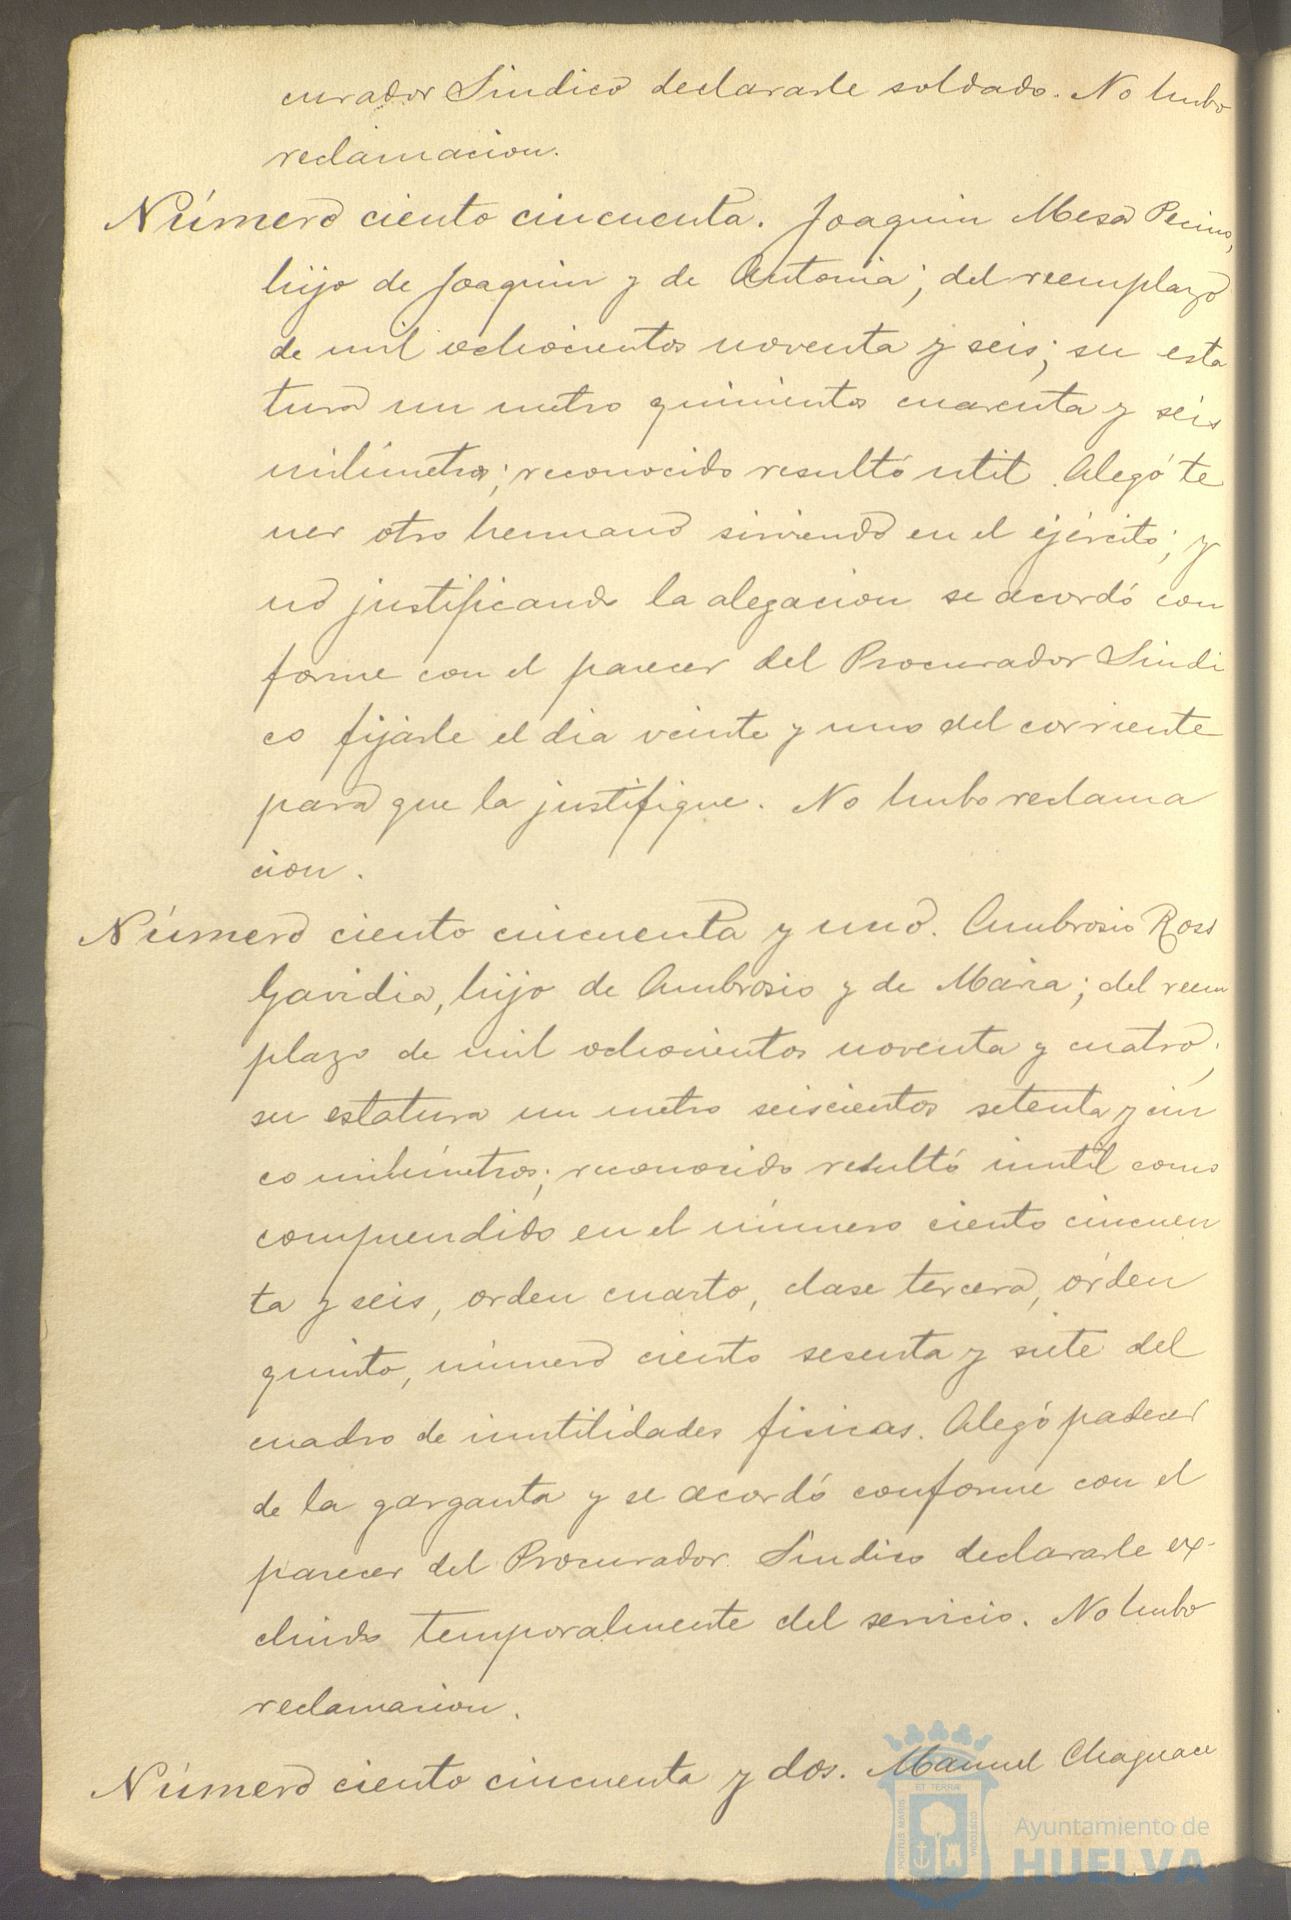 curador Sindico declararle soldado. No hubo
reclamacion.
Número ciento cincuenta. Joaquin Mesa Pecino,
hijo de Joaquin y de Antonia; del reemplazo
de mil ochocientos noventa y seis; su esta
tura un metro quinientos cuarenta y seis
milímetros; reconocido resultó util. Alegó te
ner otro hermano sirviendo en el ejército; y
no justificando la alegacion se acordó con
forme con el parecer del Procurador Sindi
co fijarle el dia veinte y uno del corriente
para que la justifique. No hubo reclama
cion.
Número ciento cincuenta y uno. Ambrosio Ross
Gavidia, hijo de Ambrosio y de Maria; del reem
plazo de mil ochocientos noventa y cuatro;
su estatura un metro seiscientos setenta y cin
co milímetros; reconocido resultó inutil como
comprendido en el número ciento cincuen
ta y seis, orden cuarto, clase tercera, órden
quinto, número ciento sesenta y siete del
cuadro de inutilidades fisicas. Alegó padecer
de la garganta y se acordó conforme con el
parecer del Procurador Sindico declararle ex-
cluido temporalmente del servicio. No hubo
reclamacion.
Número ciento cincuenta y dos. Manuel Chaguace
PORTUS MARIS ET TERRAE CUSTODIA
Ayuntamiento de
HUELVA